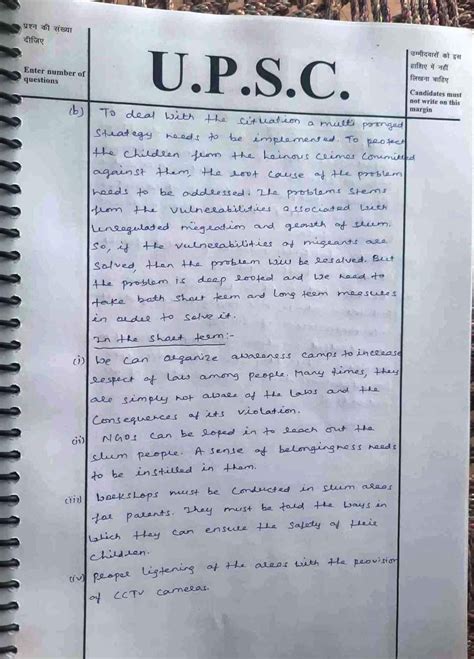 प्रश्न की संख्या
दीजिए
Enter number of
questions
U.P.S.C.
उम्मीदवारों को इस
हाशिए में नहीं
लिखना चाहिए
Candidates must
not write on this
margin
(b) To deal with the situation a multi pronged
strategy needs to be implemented. To protect
the children from the heinous crimes committed
against them, the root cause of the problem
needs to be addressed. The problems stems
from the vulnerabilities associated with
unregulated migration and growth of slum.
So, if the vulnerabilities of migrants are
solved, then the problem will be resolved. But
the problem is deep rooted and we need to
take both short term and long term measures
in order to solve it.
In the short term:-
(i) We can organize awareness camps to increase
respect of law among people. Many times, they
are simply not aware of the laws and the
consequences of its violation.
(ii) NGOs can be roped in to reach out the
slum people. A sense of belongingness needs
to be instilled in them.
(iii) Workshops must be conducted in slum areas
for parents. They must be told the ways in
which they can ensure the safety of their
children.
(iv) Proper lightening of the areas with the provision
of CCTV cameras.